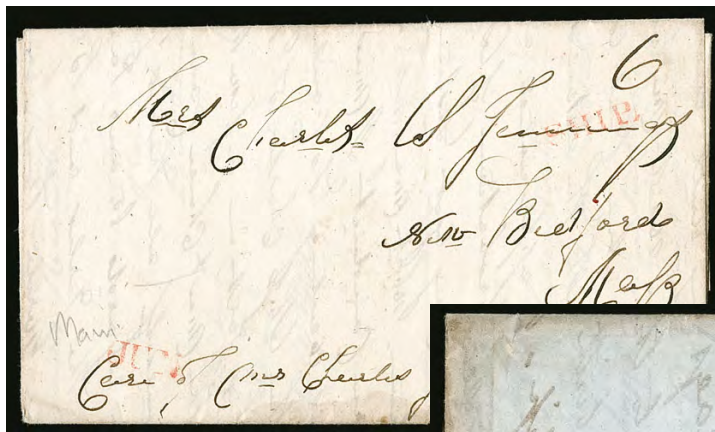 6
SHIP
Mrs
Charles W Jennings
New Bedford
Mass
Maui
Care of Mr Charles